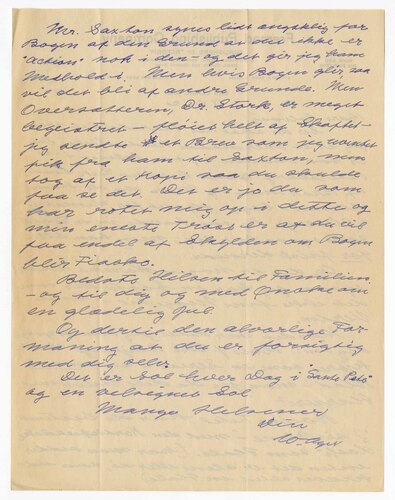 Mr. Saxton synes lidt ængstelig for
Bogen af den Grund at der ikke er
"action" nok i den - og det gir jeg ham
Medhold i. Men hvis Bogen glir, saa
vil det bli af andre Grunde. Min
Oversætterin, Dr. Stork, er meget
begeistret - fløiet helt af Skaftet -
jeg sendte et Brev som jeg
fik fra ham til Saxton, men
tog af et Kopi saa du skulde
faa se det. Det er jo du som
har rotet mig op i dette og
min eneste Trøst er at du vil
faa endel af Skylden om Bogen
blir Fiasko.
Bedste Hilsen til Familien
- og til dig og med Ønske om
en glædelig Jul.
Og dertil den alvorlige For-
maning at du er forsigtig
med dig selv.
Det er Sol hver Dag i "Sante Fe"
og en velsignet Sol
Mange Hilsener
Din